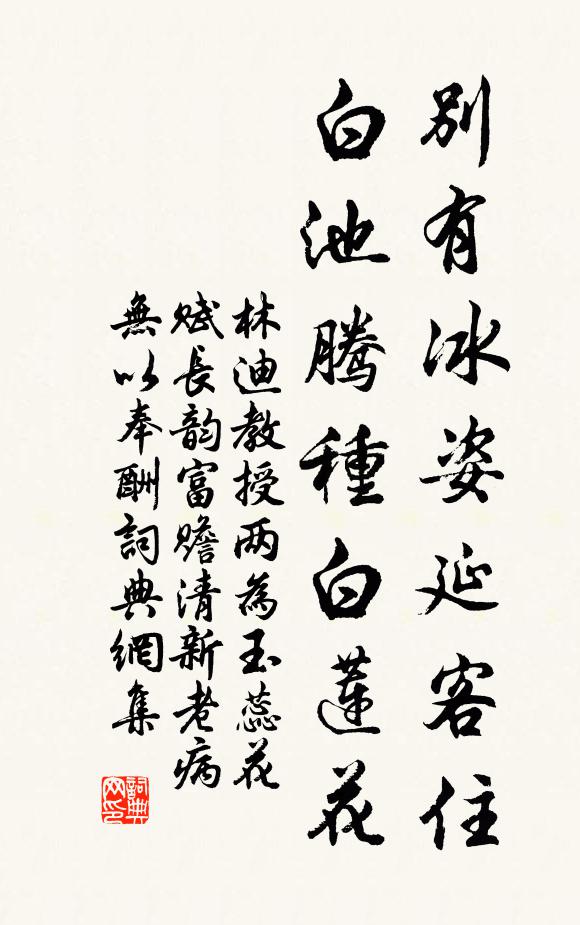 別有冰姿延客住
白池腾種白蓮花
林迪教授两為玉蕊花
赋長韵富贍清新老病
無以奉酬詞典網集
詞典网印